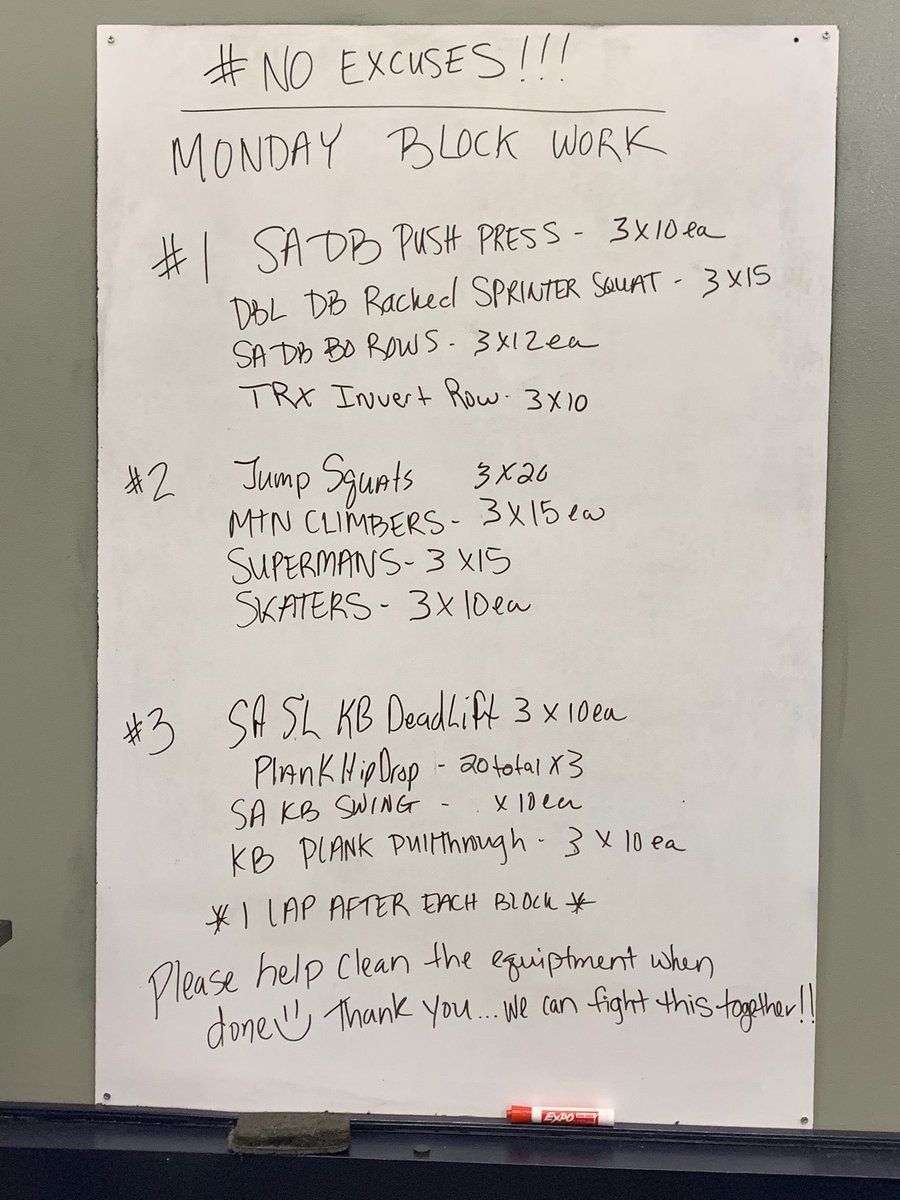 # NO EXCUSES!!!
MONDAY BLOCK WORK
#1 SA DB PUSH PRESS - 3X10 ea
DBL DB Racked SPRINTER SQUAT - 3X15
SA DB BO ROWS - 3X12 ea
TRX Invert Row - 3X10
#2 Jump Squats 3X20
MTN CLIMBERS - 3X15 ea
SUPERMANS - 3X15
SKATERS - 3X10 ea
#3 SA SL KB DeadLift 3X10 ea
Plank Hip Drop - 20 total X3
SA KB SWING - X 10 ea
KB PLANK Pullthrough - 3X10 ea
* 1 LAP AFTER EACH BLOCK *
Please help clean the equiptment when
done Thank you... We can fight this together!!
EXPO